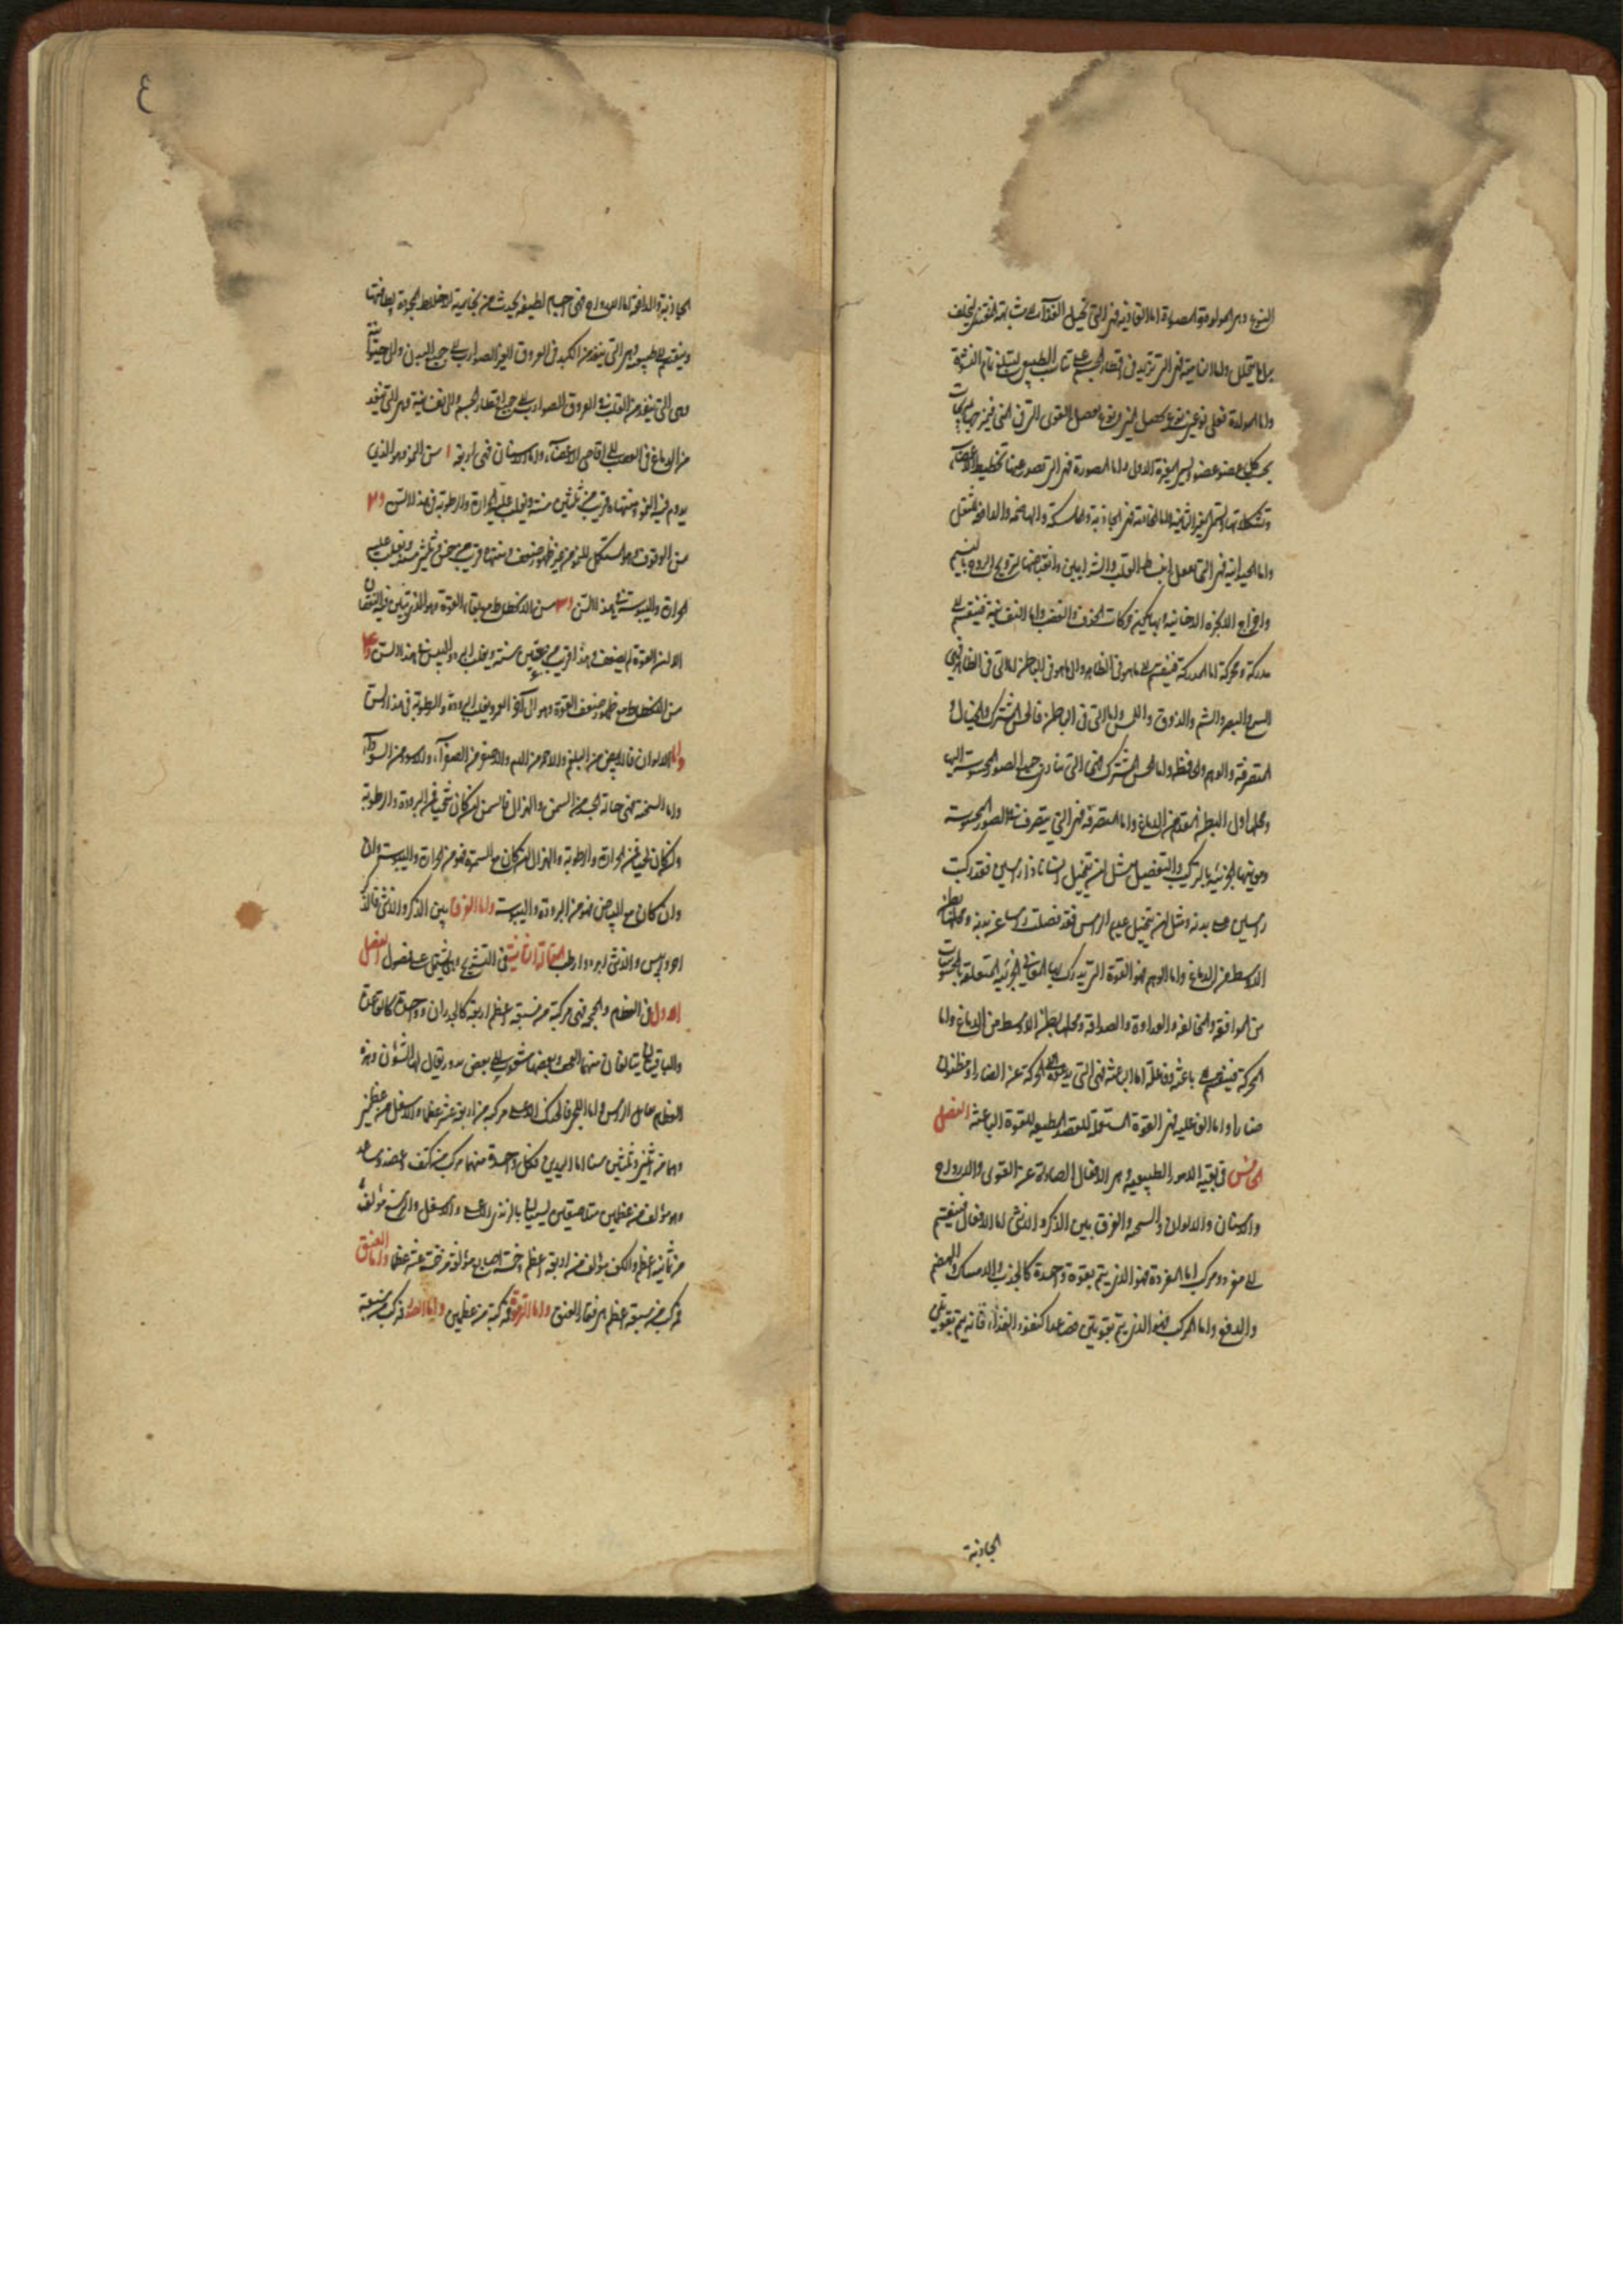 النوع وهى المولدة والمصورة اما الغاذية فهى التى تحيل الغذآء الى مشابهة المغتذى ليخلف
بدل ما يتحلل واما النامية فهى التى تزيد فى اقطار الجسم على تناسب الطبيعى ليبلغ تمام النشو
واما المولدة فعلى نوعين نوع يحصل المنى ونوع يفصل القوى التى فى المنى فيمزجها تمزيجات
بحسب كل عضو عضو وتسمى المغيرة الاولى واما المصورة فهى التى تصدر عنها تخطيط الاعضآء
وتشكلاتها وتسمى المغيرة الثانية واما الخادمة فهى الجاذبة والماسكة والهاضمة والدافعة للثفل
واما الحيوانية فهى التى تفعل انبساط القلب والشرايين وانقباضها لترويح الروح بالنسيم
واخراج الابخرة الدخانية وبها يكون حركات الخوف والغضب واما النفسانية فتنقسم الى
مدركة ومحركة اما المدركة فتنقسم الى ما هو فى الظاهر والى ما هو فى الباطن اما التى فى الظاهر فهى
السمع والبصر والشم والذوق واللمس واما التى فى الباطن فالحس المشترك والخيال و
المتصرفة والوهم والحافظة واما الحس المشترك فهى التى يتادى جميع الصور المحسوسة اليها
ومحلها اول البطن المقدم من الدماغ واما المتصرفة فهى التى يتصرف فى الصور المحسوسة
ومعانيها الجزئية بالتركيب والتفصيل مثل ان يتخيل انسانا ذا راسين فقد ركبت
راسين على بدنه ومثل ان يتخيل عديم الراس فقد فصلت راسا عن بدنه ومحلها بطن
الاوسط من الدماغ واما الوهم فهو القوة التى يدرك بها المعانى الجزئية المتعلقة بالمحسوسات
من الموافقة والمخالفة والعداوة والصداقة ومحلها بطن الاوسط من الدماغ واما
المحركة فينقسم الى باعثة وفاعلة اما الباعثة فهى التى يدعو الى الحركة عن الضار او مظنون
ضارا واما الفاعلية فهى القوة المستعملة للعضل المطيعة للقوة الباعثة الفصل
الخامس فى بقية الامور الطبيعية وهى الافعال الصادرة عن القوى والارواح
والاسنان والالوان والسحنة والفرق بين الذكر والانثى اما الافعال فينقسم
الى مفرد ومركب اما المفردة فهو الذى يتم بقوة واحدة كالجذب والامساك والهضم
والدفع واما المركب فهو الذى يتم بقوتين فصاعدا كنفوذ الغذآء فانه يتم بقوتى
الجاذبة
٤
الجاذبة والدافعة اما الارواح فهى اجسام لطيفة يحدث من بخارية الاخلاط المحمودة ولطافتها
وينقسم الى طبيعية وهى التى ينفذ من الكبد فى العروق الغير الضوارب الى جميع البدن والى حيوانية
وهى التى ينفذ من القلب فى العروق الضوارب الى جميع اقطار الجسم والى نفسانية وهى التى ينفذ
من الدماغ فى العصب الى اقاصى الاعضآء واما الاسنان فهى اربعة ا سن النمو وهو الذى
يدوم فيه النمو ومنتهاه قريب من ثلثين سنة ويغلب عليه الحرارة والرطوبة فى هذا السن و٢
سن الوقوف وهو المستكمل للنمو من غير ظهور ضعف ومنتهاه قريب من خمس وثلثين سنة ويغلب عليه
الحرارة واليبوسة فى هذا السن و٣ سن الانحطاط مع بقاء القوة وهو الذى يتبين فيه النقصان
الا ان القوة لم يضعف وهذا قريب من ستين سنة ويغلب البرد واليبس فى هذا السن و٤
سن الانحطاط مع ظهور ضعف القوة وهو الى آخر العمر ويغلب البرودة والرطوبة فى هذا السن
واما الالوان فالابيض من البلغم والاحمر من الدم والاصفر من الصفرآء والاسود من السودآء
واما السحنة فهى حالة الجسد من السمن والهزال فالسمن ان كان شحميا فمن البرودة والرطوبة
وان كان لحميا فمن الحرارة والرطوبة والهزال ان كان مع السمرة فهو من الحرارة واليبوسة وان
وان كان مع البياض فهو من البرودة واليبوسة واما الفرق بين الذكر والانثى فالذكر
احر وايبس والانثى ابرد وارطب المقالة الثانية فى التشريح وهى يشتمل على فصول الفصل
الاول فى العظام والجمجمة فهى مركبة من سبعة اعظم اربعة كالجدران وواحدة كالقاعدة
والباقيان يتالفان منهما القحف وبعضها متصل الى بعض بدروز يقال لها الشؤون وهذه
العظام تحمل الراس واما اللحى فالحنك الاعلى مركبة من اربعة عشر عظما والاسفل من عظمين
وهما من اثنين وثلثين سنا اما اليدين فكل واحدة منهما مركب من كتف وعضد وساعد
وهو مؤلف من عظمين متلاصقين يسميان بالزندين الاعلى والاسفل والرسغ مؤلف
من ثمانية اعظم والكف مؤلف من اربعة اعظم وخمسة اصابع مؤلفة من خمسة عشر عظما واما العنق
فمركب من سبعة اعظم هى فقار العنق واما الترقوة فمركبة من عظمين واما الصدر فمركب من سبعة